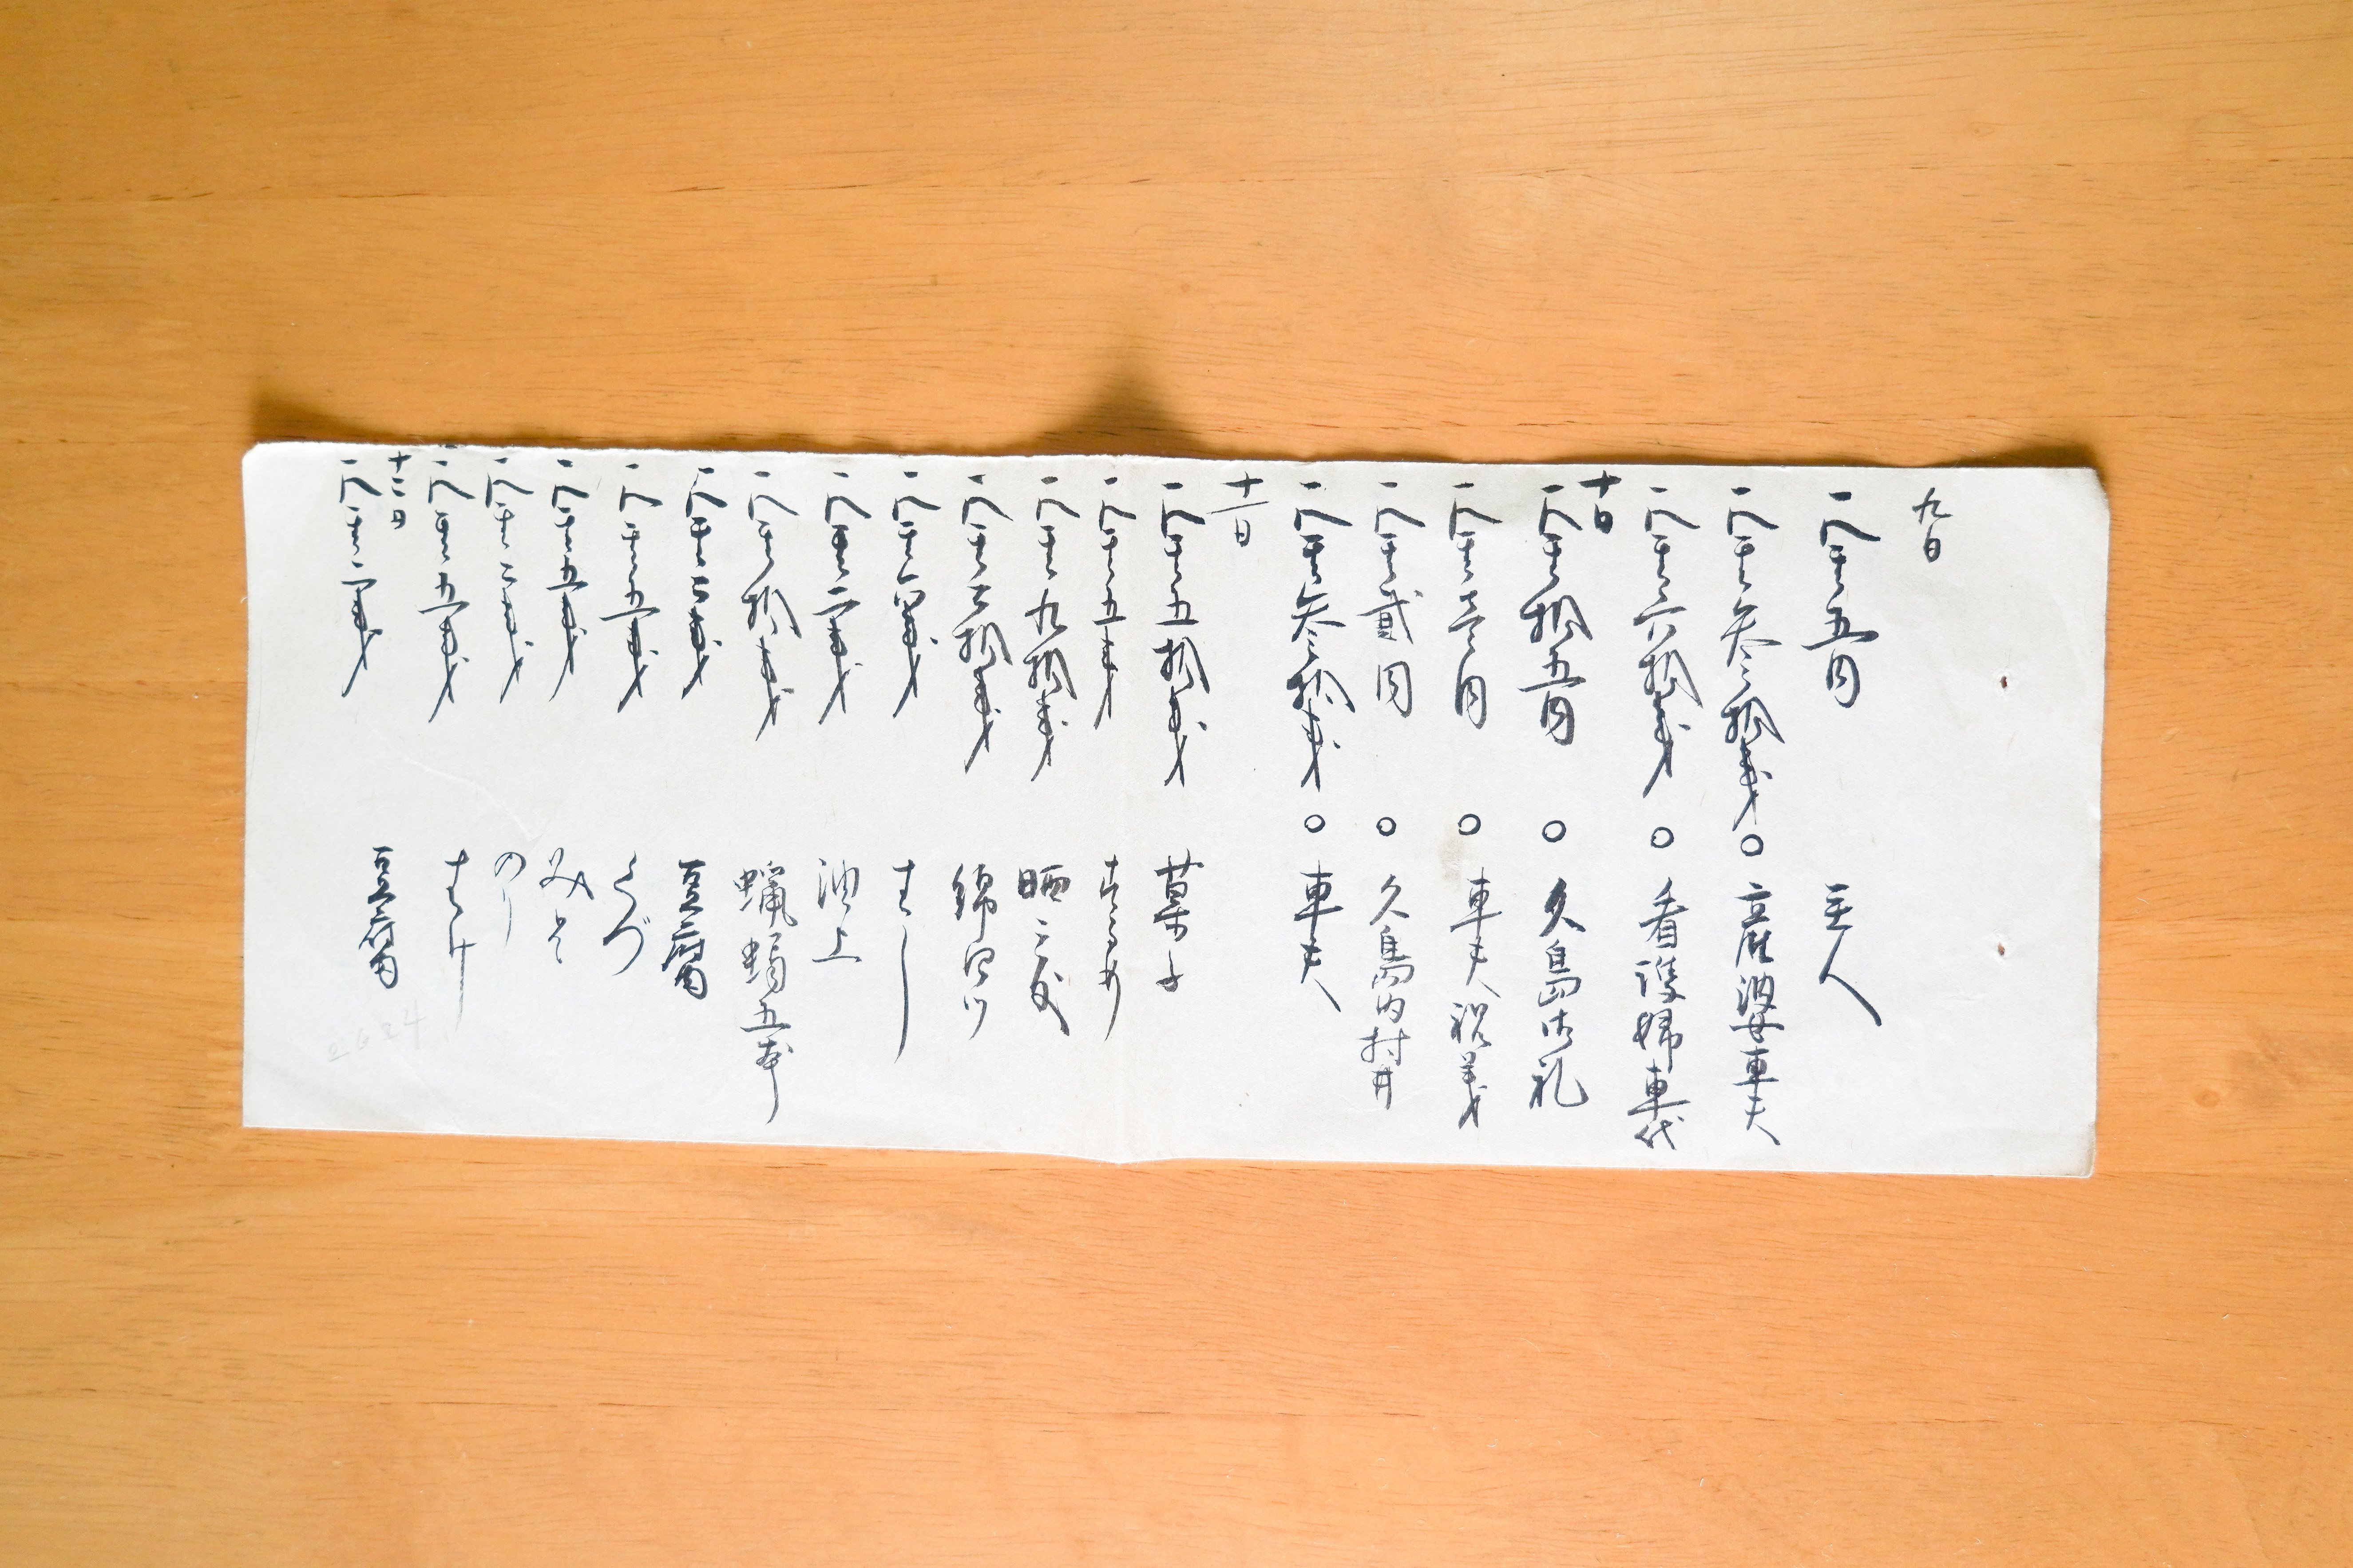 九日
一金五円 主人
一金参拾銭○産婆車夫
一金六拾銭○看護婦車代
十日
一金拾五円○久島御礼
一金壱円○車夫祝義
一金貮円○久島内村井
一金参拾銭○車夫
十一日
一金五拾銭 菓子
一金五銭
一金九拾銭 晒二反
一金二拾銭 綿四ツ
一金八銭
一金二銭 油上
一金拾銭 蝋蠋五本
一金二銭 豆腐
一金五銭 くづ
一金五銭 みそ
一金二銭 のり
一金五銭
十二日
一金二銭 豆腐
2624